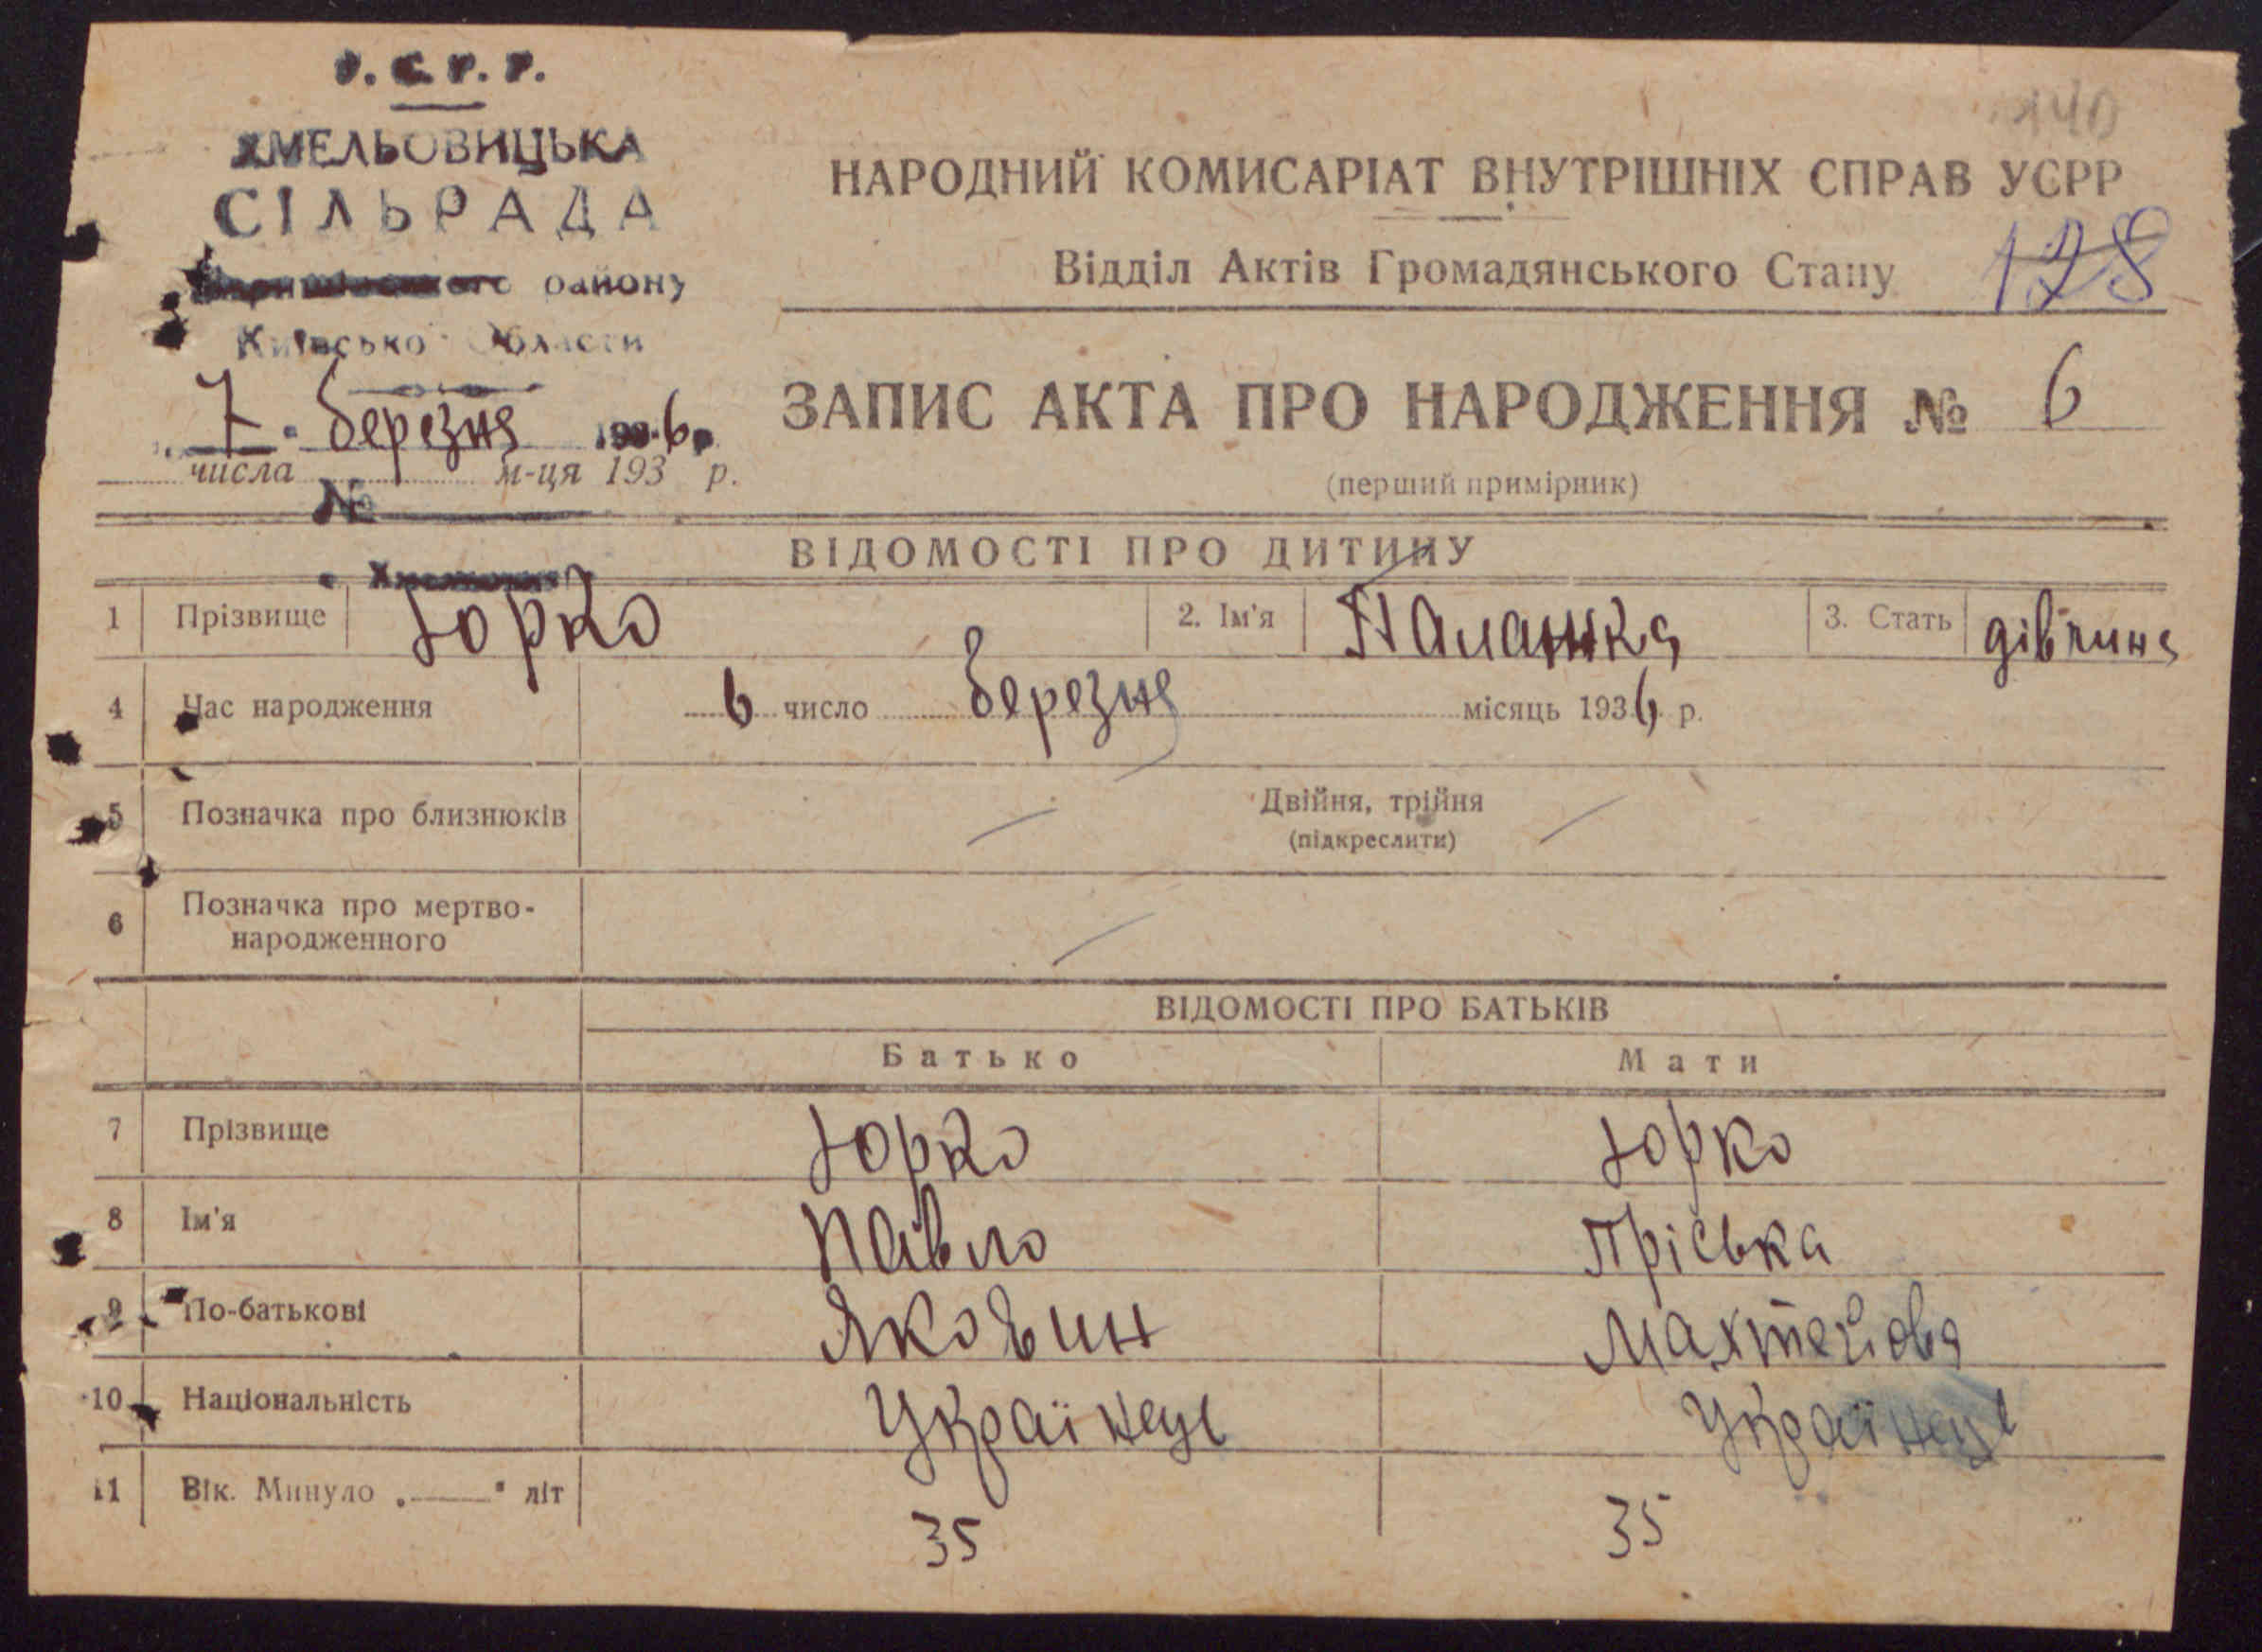 У.С.Р.Р.
ХМЕЛЬОВИЦЬКА
СІЛЬРАДА
району
Київсько Области
7 березня 1936 р.
числа м-ця 193 р.
№
140
НАРОДНИЙ КОМИСАРІАТ ВНУТРІШНІХ СПРАВ УСРР
Відділ Актів Громадянського Стану
128
ЗАПИС АКТА ПРО НАРОДЖЕННЯ № 6
(перший примірник)
ВІДОМОСТІ ПРО ДИТИНУ
1 Прізвище Юрко 2. Ім'я Палажка 3. Стать дівчина
4 Час народження 6 число березня місяць 1936 р.
5 Позначка про близнюків Двійня, трійня
(підкреслити)
6 Позначка про мертво-
народженного
ВІДОМОСТІ ПРО БАТЬКІВ
Батько Мати
7 Прізвище Юрко Юрко
8 Ім'я Павло Пріська
9 По-батькові Яковин
10 Національність Українець Українець
11 Вік. Минуло „—" літ 35 35